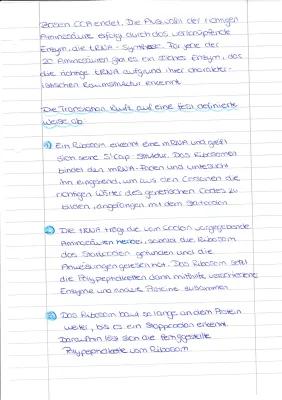 Basen CCA endet. Die Auswahl der richtigen
Aminosäure erfolgt durch das verknüpfende
Enzym, die tRNA - Synthese. Für jede der
20 Aminosäuren gibt es ein solches Enzym, das
die richtige tRNA aufgrund ihrer charakter-
istischen Raumstruktur erkennt.
Die Translation läuft auf eine fest definierte
Weise ab:
1) Ein Ribosom erkennt eine mRNA und greift
sich seine 5'Cap-Struktur. Das Ribosomen
bindet den mRNA-Faden und untersucht
ihn eingehend, um aus den
richtigen Wörter des genetischen Codes zu
bilden, angefangen mit dem Startcodon
2) Die tRNA trägt die vom Codon vorgegebene
Aminosäuren herbei, sobald die Ribosom
das Startcodon gefunden und die
Anweisungen gelesen hat. Das Ribosom setzt
die Polypeptidketten dann mithilfe verschiedener
Enzyme und Proteine zusammen.
3) Das Ribosom baut so lange an dem Protein
weiter, bis es ein Stoppcodon erkennt.
Daraufhin löst sich die fertiggestellte
Polypeptidkette vom Ribosom